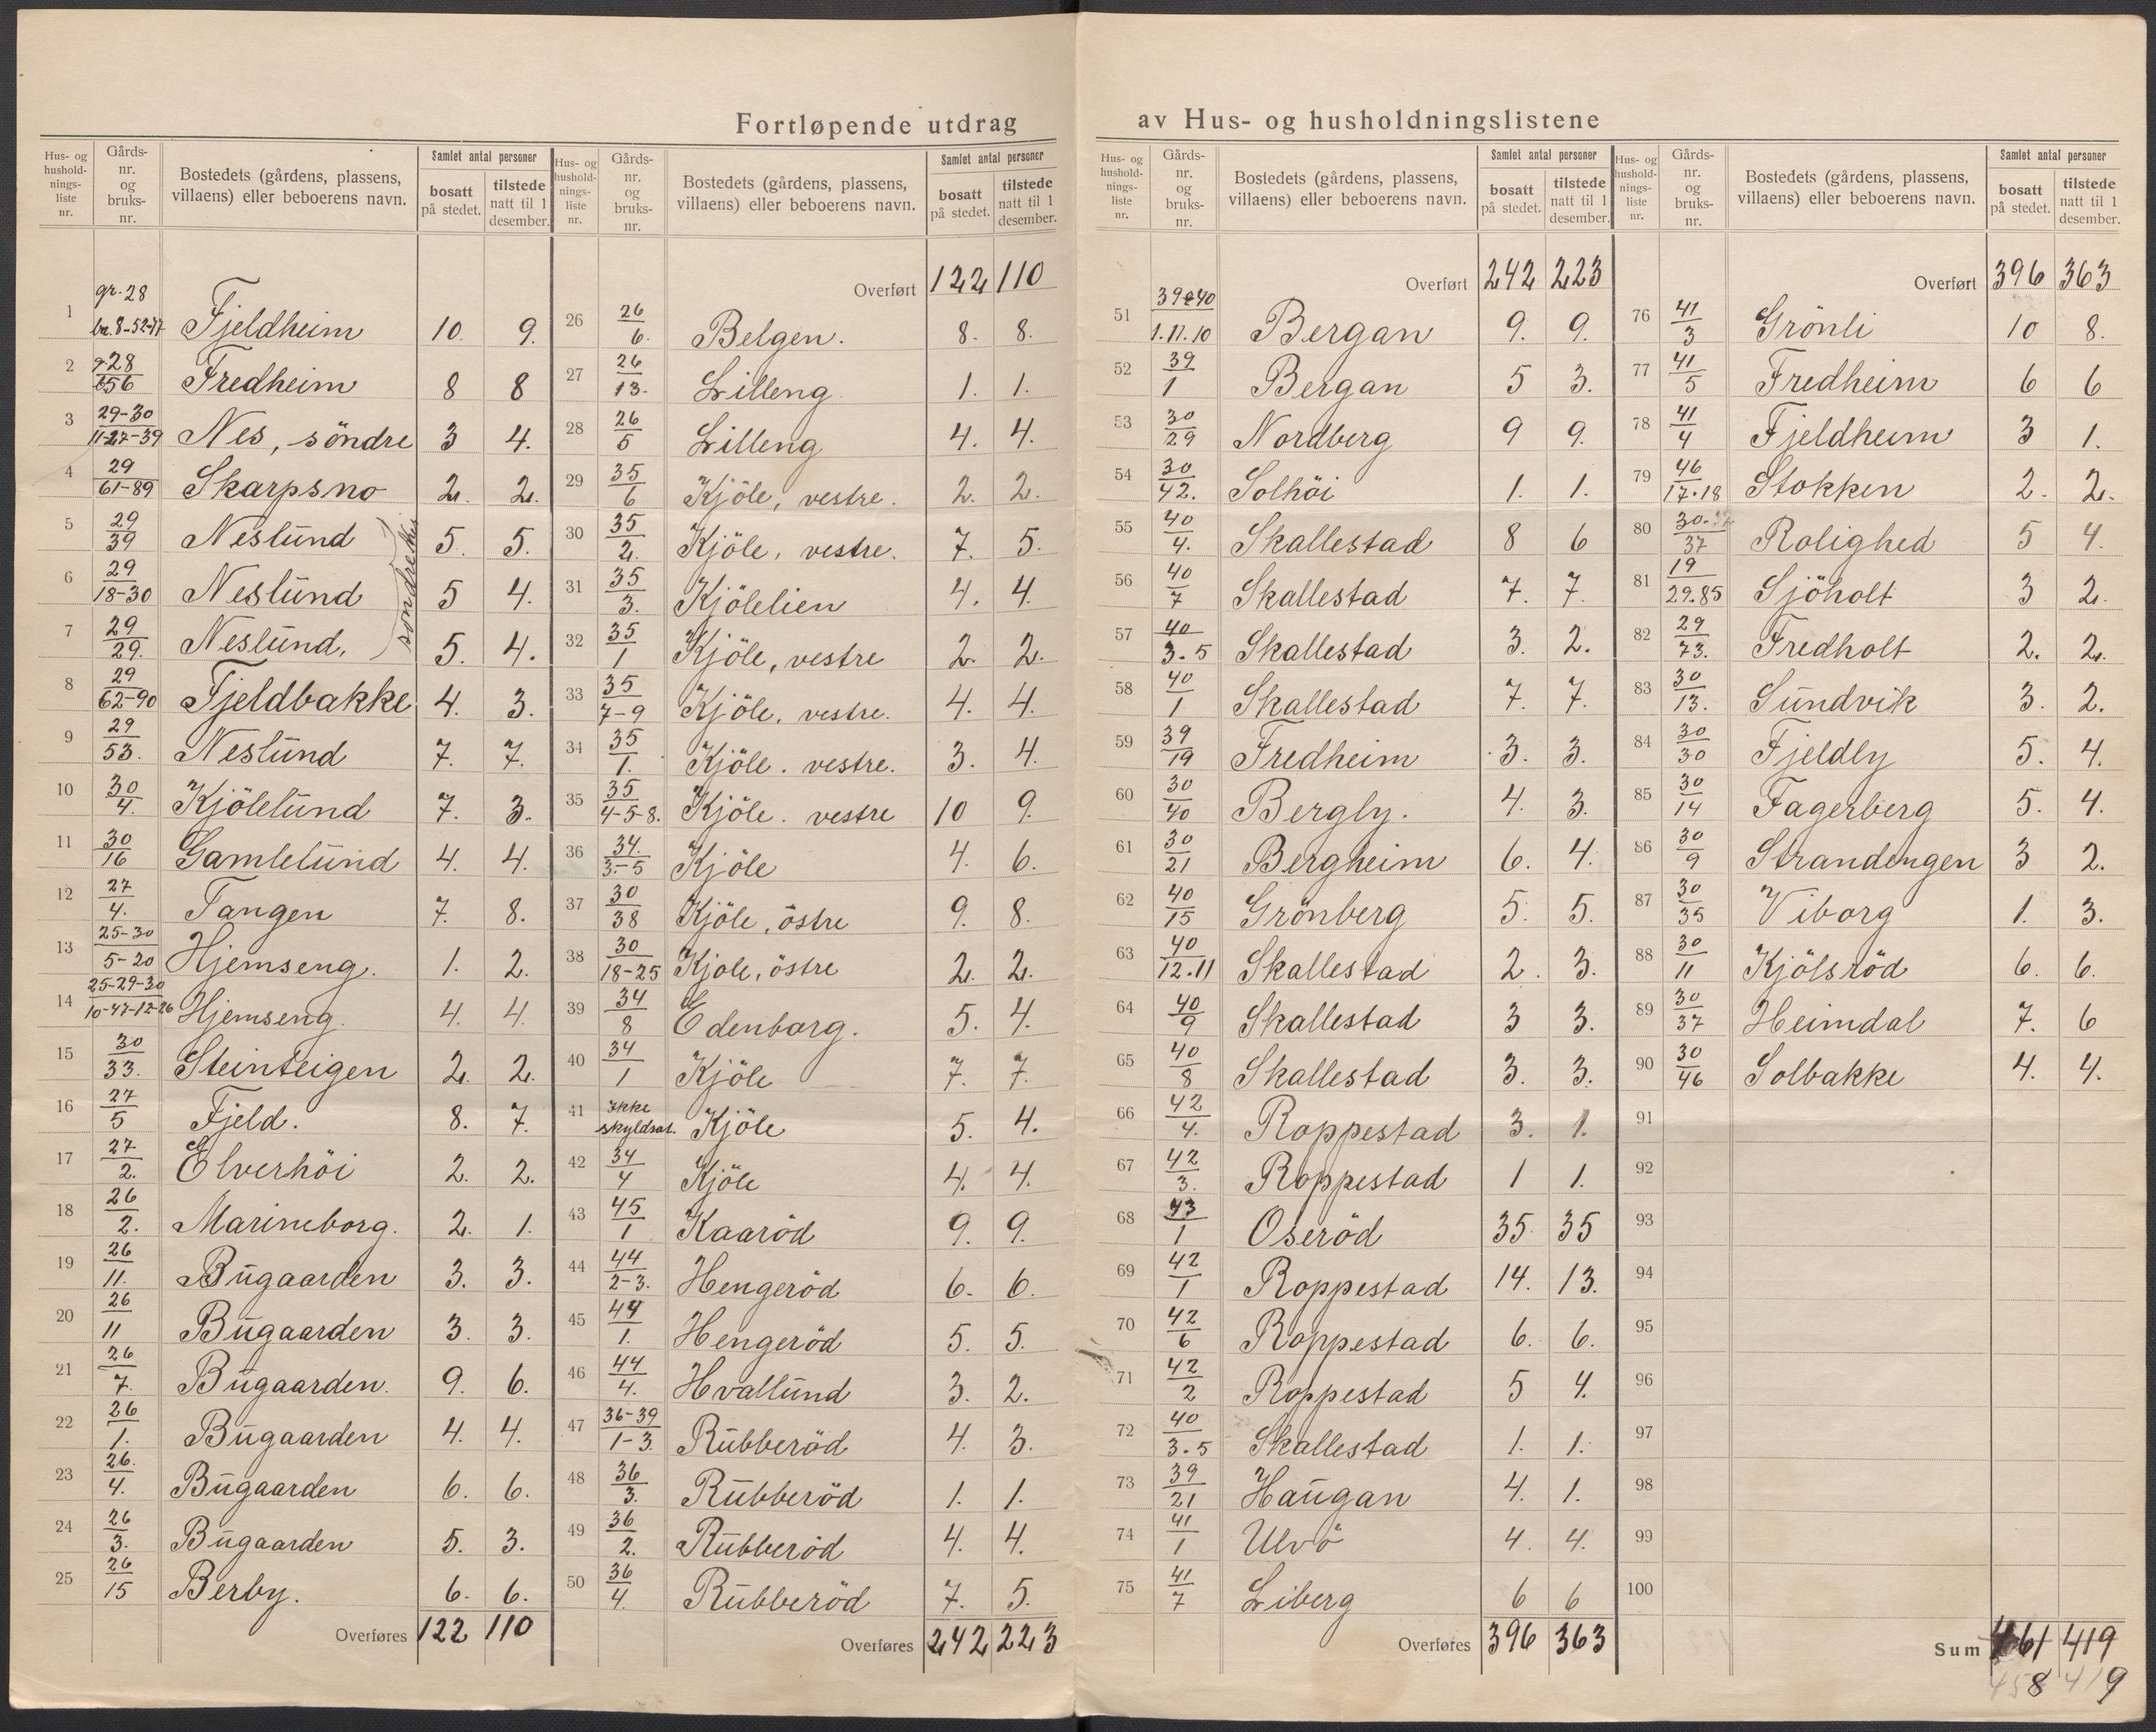 Fortløpende utdrag av Hus- og husholdningslistene
Hus- og hushold-nings-liste nr. | Gårds-nr. og bruks-nr. | Bostedets (gårdens, plassens, villaens) eller beboerens navn. | Samlet antal personer | bosatt på stedet. | tilstede natt til 1 desember.
1 gr. 28 br. 8-52-77 Fjeldheim 10. 9.
2 g. 28 / 56 Fredheim 8 8
3 29-30 / 11-27-39 Nes, söndre 3 4.
4 29 / 61-89 Skarpsno 2. 2.
5 29 / 39 Neslund 5. 5.
6 29 / 18-30 Neslund 5 4.
7 29 / 29. Neslund. 5. 4.
söndre Nes
8 29 / 62-90 Fjeldbakke 4. 3.
9 29 / 53. Neslund 7. 7.
10 30 / 4. Kjölelund 7. 3.
11 30 / 16 Gamlelund 4. 4.
12 27 / 4. Tangen 7. 8.
13 25-30 / 5-20 Hjemseng. 1. 2.
14 25-29-30 / 10-47-12-26 Hjemseng. 4. 4.
15 30 / 33. Steinteigen 2. 2.
16 27 / 5 Fjeld. 8. 7.
17 27 / 2. Elverhöi 2. 2.
18 26 / 2. Marineborg. 2. 1.
19 26 / 11. Bugaarden 3. 3.
20 26 / 11 Bugaarden 3. 3.
21 26 / 7. Bugaarden. 9. 6.
22 26 / 1. Bugaarden 4. 4.
23 26. / 4. Bugaarden 6. 6.
24 26 / 3. Bugaarden 5. 3.
25 26 / 15 Berby. 6. 6.
Overføres 122 110
Hus- og hushold-nings-liste nr. | Gårds-nr. og bruks-nr. | Bostedets (gårdens, plassens, villaens) eller beboerens navn. | Samlet antal personer | bosatt på stedet. | tilstede natt til 1 desember.
Overført 122 110
26 26 / 6. Belgen. 8. 8.
27 26 / 13. Lilleng. 1. 1.
28 26 / 5 Lilleng 4. 4.
29 35 / 6 Kjöle, vestre. 2. 2.
30 35 / 2. Kjöle, vestre. 7. 5.
31 35 / 3. Kjölelien 4. 4.
32 35 / 1 Kjöle, vestre 2. 2.
33 35 / 7-9 Kjöle, vestre. 4. 4.
34 35 / 1. Kjöle. vestre. 3. 4.
35 35 / 4-5-8. Kjöle. vestre 10 9.
36 34. / 3.-5 Kjöle 4. 6.
37 30 / 38 Kjöle, östre 9. 8.
38 30 / 18-25 Kjole, östre 2. 2.
39 34 / 8 Edenborg. 5. 4.
40 34 / 1 Kjöle 7. 7.
41 Ikke skyldsat. Kjöle 5. 4.
42 34 / 4 Kjöle 4. 4.
43 45 / 1 Kaaröd 9. 9.
44 44 / 2-3. Hengeröd 6. 6.
45 44 / 1. Hengeröd 5. 5.
46 44 / 4. Hvallund 3. 2.
47 36-39 / 1-3. Rubberöd 4. 3.
48 36 / 3. Rubberöd 1. 1.
49 36 / 2. Rubberöd 4. 4.
50 36 / 4. Rubberöd 7. 5.
Overføres 242 223
Hus- og hushold-nings-liste nr. | Gårds-nr. og bruks-nr. | Bostedets (gårdens, plassens, villaens) eller beboerens navn. | Samlet antal personer | bosatt på stedet. | tilstede natt til 1 desember.
Overført 242 223
51 39 40 / 1.11.10 Bergan 9. 9.
52 39 / 1 Bergan 5 3.
53 30 / 29 Nordberg 9 9.
54 30 / 42. Solhöi 1. 1.
55 40 / 4. Skallestad 8 6
56 40 / 7 Skallestad 7. 7.
57 40 / 3.5 Skallestad 3. 2.
58 40 / 1 Skallestad 7. 7.
59 39 / 19 Fredheim 3. 3.
60 30 / 40 Bergly. 4. 3.
61 30 / 21 Bergheim 6. 4.
62 40 / 15 Grönberg 5. 5.
63 40 / 12.11 Skallestad 2. 3.
64 40 / 9 Skallestad 3 3.
65 40 / 8 Skallestad 3. 3.
66 42 / 4. Roppestad 3. 1.
67 42 / 3. Roppestad 1 1.
68 43 / 1 Oseröd 35. 35
69 42 / 1 Roppestad 14. 13.
70 42 / 6 Roppestad 6. 6.
71 42 / 2 Roppestad 5 4.
72 40 / 3.5 Skallestad 1. 1.
73 39 / 21 Haugan 4. 1.
74 41 / 1 Ulvö 4. 4.
75 41 / 7 Liberg 6 6
Overføres 396 363
Hus- og hushold-nings-liste nr. | Gårds-nr. og bruks-nr. | Bostedets (gårdens, plassens, villaens) eller beboerens navn. | Samlet antal personer | bosatt på stedet. | tilstede natt til 1 desember.
Overført 396 363
76 41 / 3 Grönli 10 8.
77 41 / 5 Fredheim 6 6
78 41 / 4 Fjeldheim 3 1.
79 46 / 17.18 Stokken 2. 2.
80 30 / 37 Rolighed 5 4.
81 19 / 29.85 Sjöholt 3 2.
82 29 / 73. Fredholt 2. 2.
83 30 / 13. Sundvik 3. 2.
84 30 / 30 Fjeldly 5. 4.
85 30 / 14 Fagerberg 5. 4.
86 30 / 9 Strandengen 3 2.
87 30 / 35 Viborg 1. 3.
88 30 / 11 Kjölsröd 6. 6.
89 30 / 37 Heimdal 7. 6
90 30 / 46 Solbakke 4. 4.
91
92
93
94
95
96
97
98
99
100
Sum 461 419
458 419